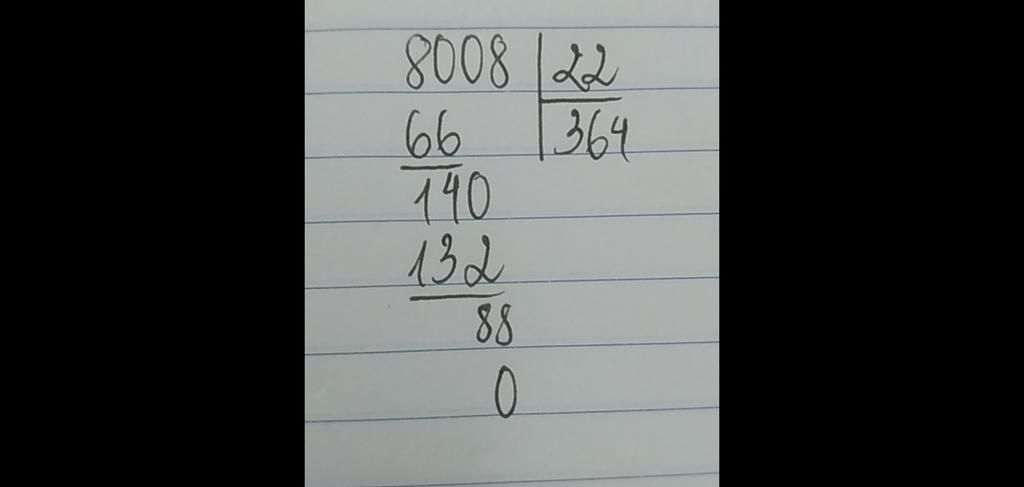 8008 22
66 364
140
132
88
0